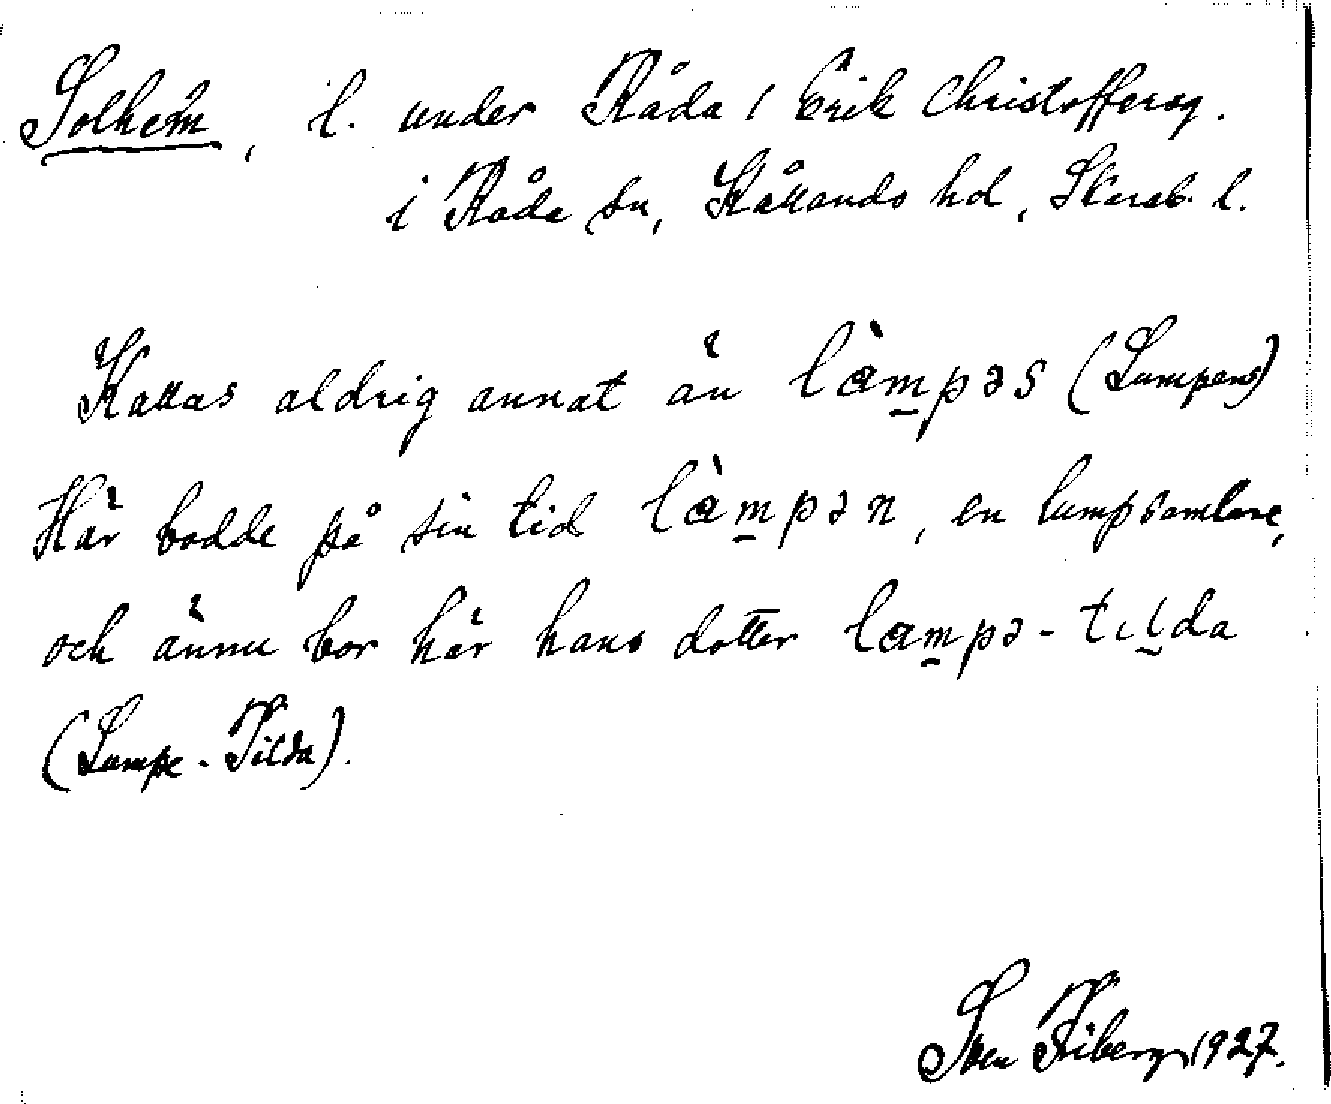 Solhem, l. under Råda / Erik Christoffersg.
i Råda sn, Kållands hd, Skarab. l.
Kallas aldrig annat än là̱mpəs (Lumpens)
Här bodde på sin tid làm̱pən, en lumpsamlare,
och ännu bor här hans dotter lam̱pə-tıḻda
(Lumpe-Tilda).
Sven Friberg 1927.